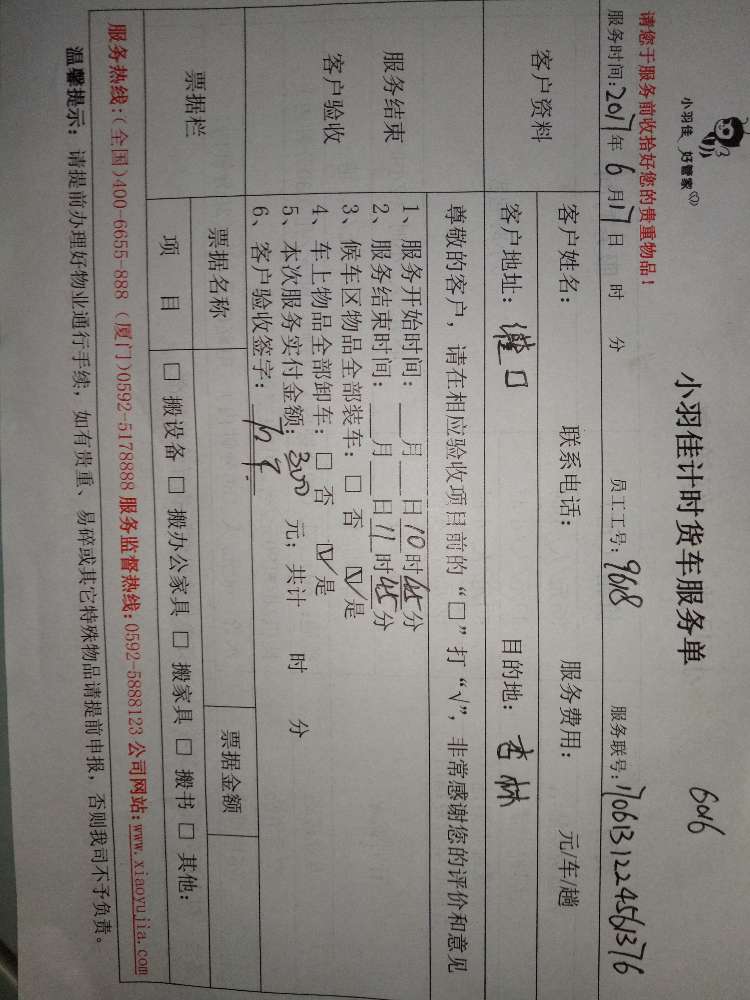 小羽佳 好管家
小羽佳计时货车服务单
6016
请您于服务前收拾好您的贵重物品！
服务时间：2017年6月17日 时 分 员工工号：9618 服务联号：1706131224561376
客户资料
客户姓名： 联系电话： 服务费用： 元/车/趟
客户地址： 口 目的地：杏林
尊敬的客户，请在相应验收项目前的“□”打“√”，非常感谢您的评价和意见
服务结束
客户验收
1、服务开始时间：__月__日10时45分
2、服务结束时间：__月__日11时45分
3、候车区物品全部装车：□ 否 ☑ 是
4、车上物品全部卸车：□ 否 ☑ 是
5、本次服务实付金额：300 元；共计 时 分
6、客户验收签字：
票据栏
票据名称 票据金额
项 目 □ 搬设备 □ 搬办公家具 □ 搬家具 □ 搬书 □ 其他：
服务热线：（全国）400-6655-888（厦门）0592-5178888 服务监督热线：0592-5888123 公司网站：www.xiaoyujia.com
温馨提示：请提前办理好物业通行手续，如有贵重、易碎或其它特殊物品请提前申报，否则我司不予负责。